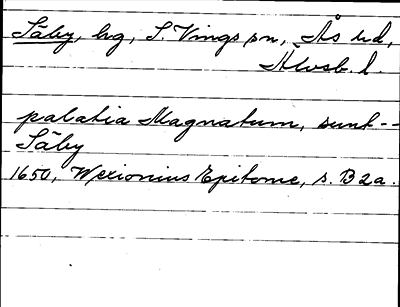 Säby, hg, S. Vings sn, Ås hd,
Älvsb. l.
palatia Magnatum, sunt --
Säby
1650, Wexionius Epitome, s. B2a.